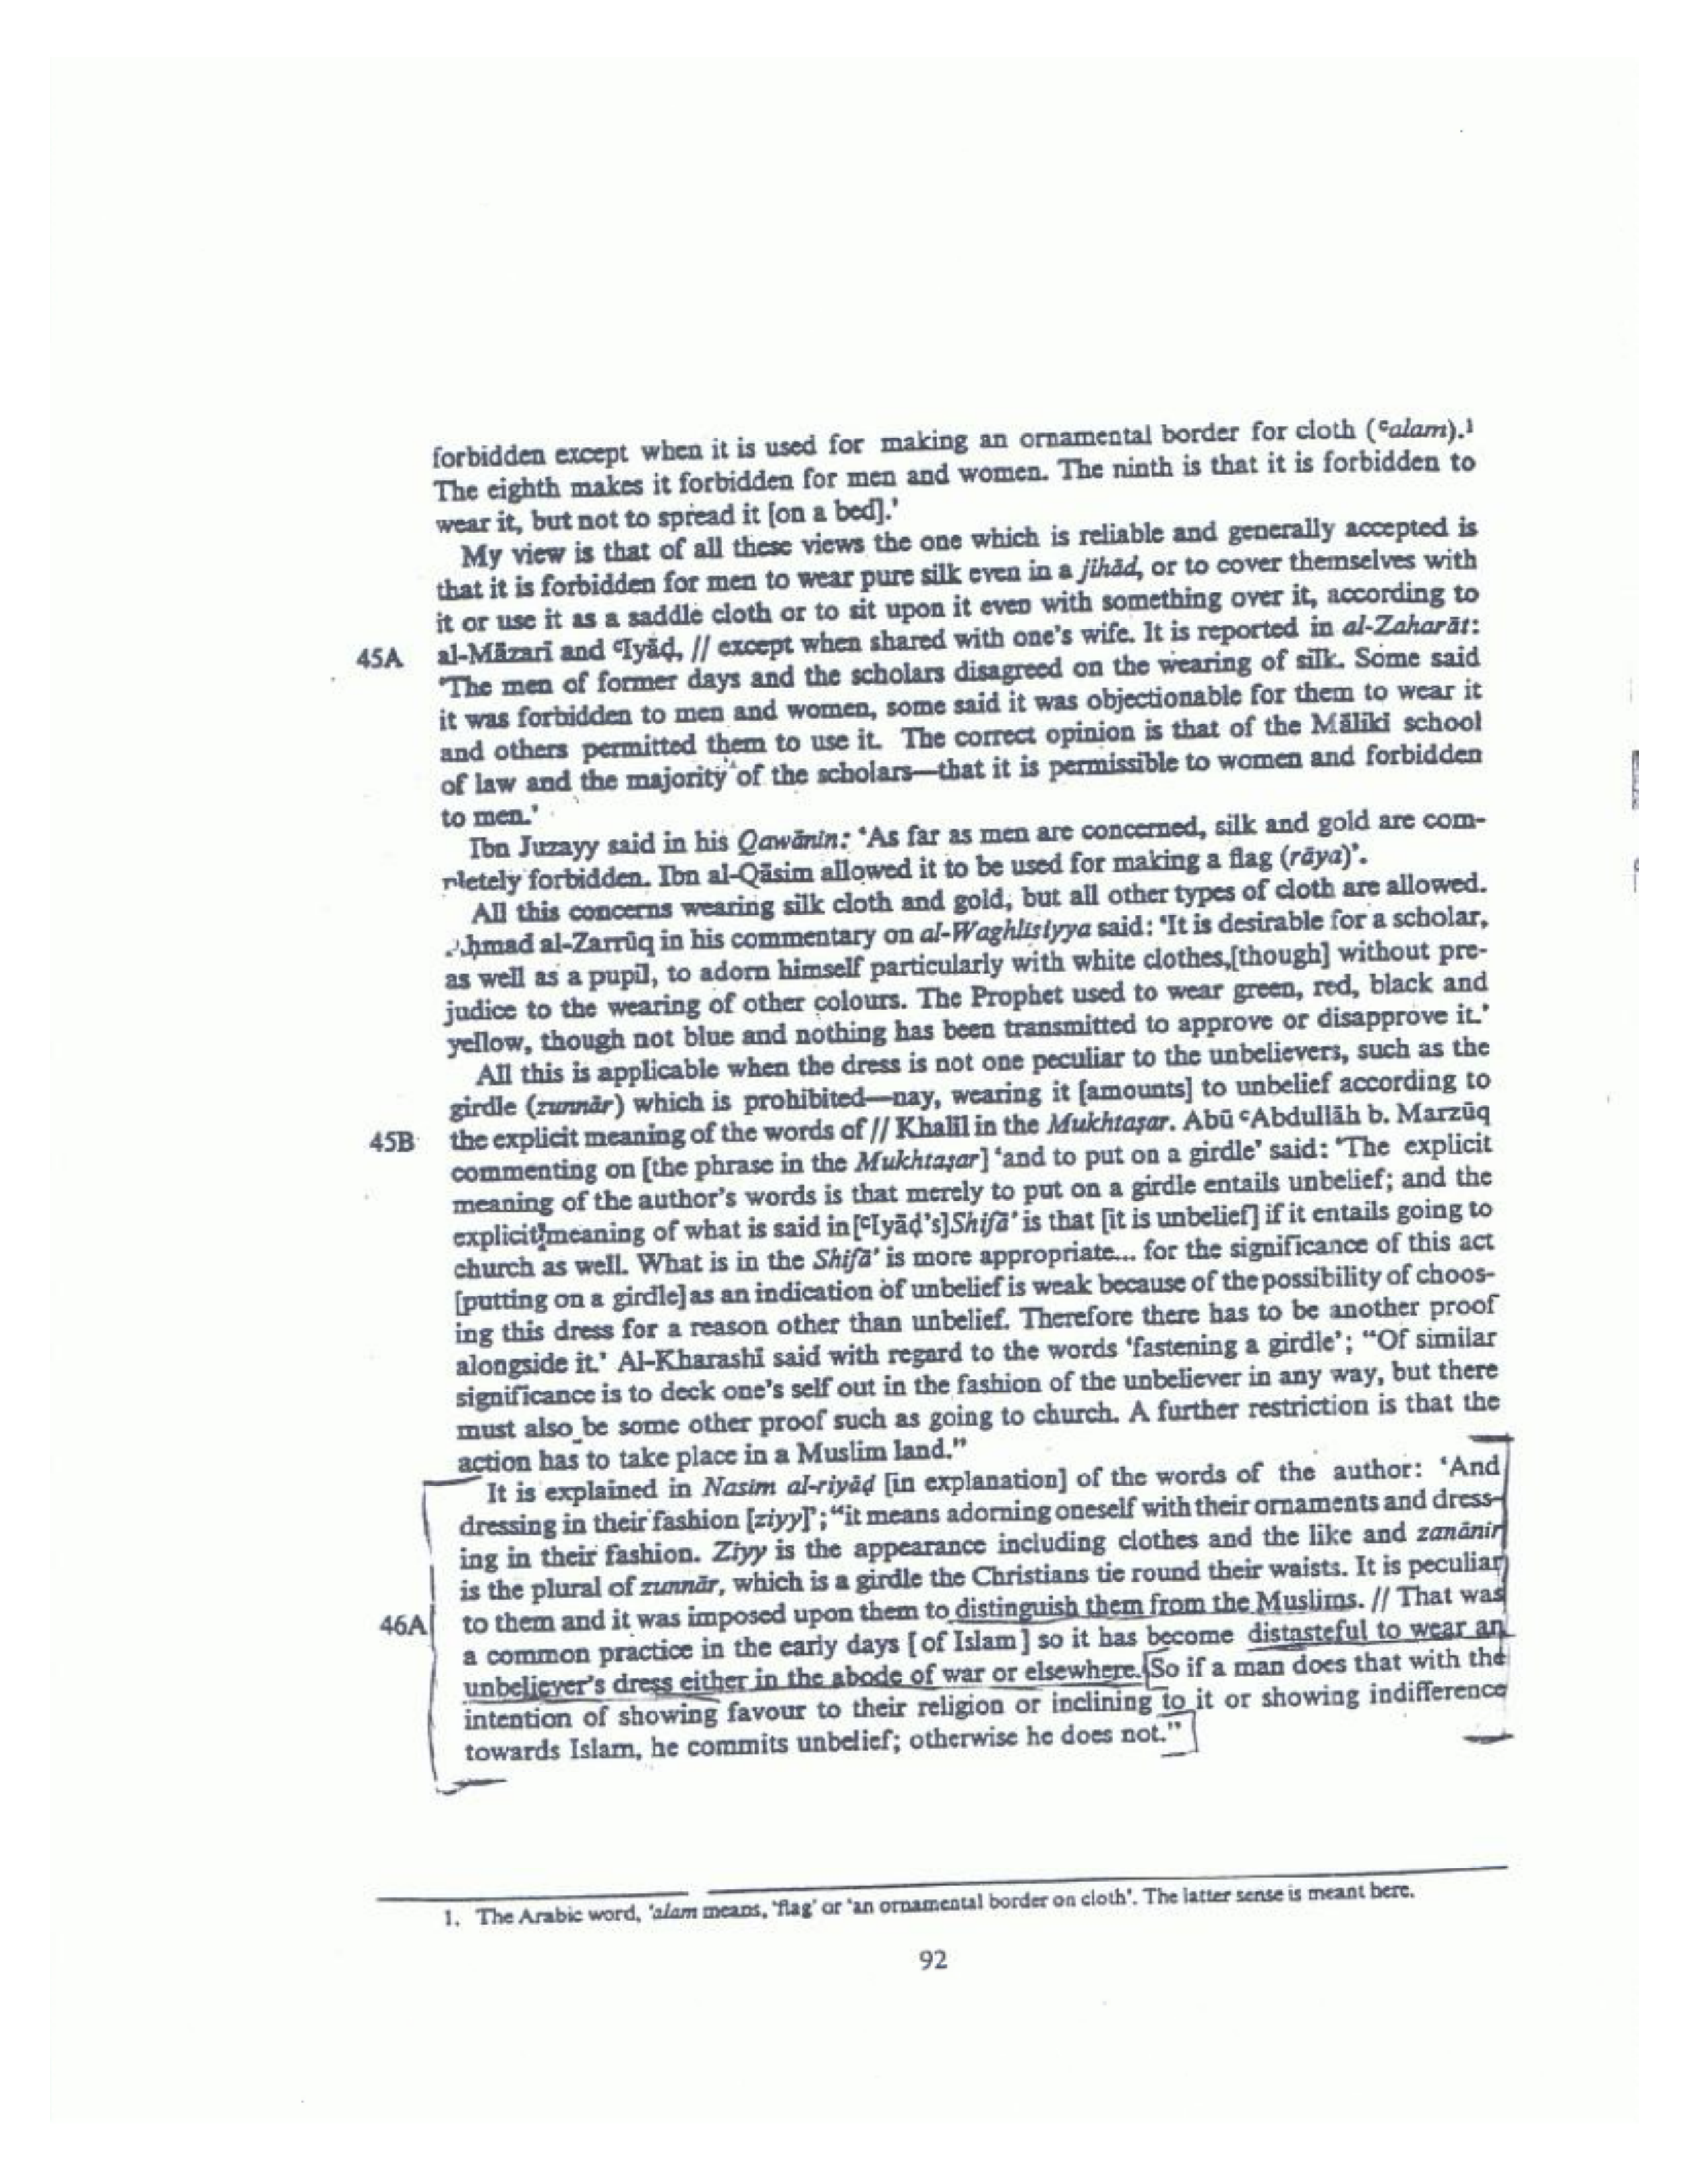 forbidden except when it is used for making an ornamental border for cloth (ᶜalam).¹
The eighth makes it forbidden for men and women. The ninth is that it is forbidden to
wear it, but not to spread it [on a bed].'
My view is that of all these views the one which is reliable and generally accepted is
that it is forbidden for men to wear pure silk even in a jihād, or to cover themselves with
it or use it as a saddle cloth or to sit upon it even with something over it, according to
45A al-Māzarī and ᶜIyāḍ, // except when shared with one's wife. It is reported in al-Zaharāt:
'The men of former days and the scholars disagreed on the wearing of silk. Some said
it was forbidden to men and women, some said it was objectionable for them to wear it
and others permitted them to use it. The correct opinion is that of the Mālikī school
of law and the majority of the scholars—that it is permissible to women and forbidden
to men.'
Ibn Juzayy said in his Qawānīn: 'As far as men are concerned, silk and gold are com-
pletely forbidden. Ibn al-Qāsim allowed it to be used for making a flag (rāya)'.
All this concerns wearing silk cloth and gold, but all other types of cloth are allowed.
Aḥmad al-Zarrūq in his commentary on al-Waghlīsiyya said: 'It is desirable for a scholar,
as well as a pupil, to adorn himself particularly with white clothes,[though] without pre-
judice to the wearing of other colours. The Prophet used to wear green, red, black and
yellow, though not blue and nothing has been transmitted to approve or disapprove it.'
All this is applicable when the dress is not one peculiar to the unbelievers, such as the
girdle (zunnār) which is prohibited—nay, wearing it [amounts] to unbelief according to
45B the explicit meaning of the words of // Khalīl in the Mukhtaṣar. Abū ᶜAbdullāh b. Marzūq
commenting on [the phrase in the Mukhtaṣar] 'and to put on a girdle' said: 'The explicit
meaning of the author's words is that merely to put on a girdle entails unbelief; and the
explicit meaning of what is said in [ᶜIyāḍ's] Shifā' is that [it is unbelief] if it entails going to
church as well. What is in the Shifā' is more appropriate... for the significance of this act
[putting on a girdle] as an indication of unbelief is weak because of the possibility of choos-
ing this dress for a reason other than unbelief. Therefore there has to be another proof
alongside it.' Al-Kharashī said with regard to the words 'fastening a girdle'; "Of similar
significance is to deck one's self out in the fashion of the unbeliever in any way, but there
must also be some other proof such as going to church. A further restriction is that the
action has to take place in a Muslim land."
It is explained in Nasīm al-riyāḍ [in explanation] of the words of the author: 'And
dressing in their fashion [ziyy]'; "it means adorning oneself with their ornaments and dress-
ing in their fashion. Ziyy is the appearance including clothes and the like and zanānīr
is the plural of zunnār, which is a girdle the Christians tie round their waists. It is peculiar
46A to them and it was imposed upon them to distinguish them from the Muslims. // That was
a common practice in the early days [of Islam] so it has become distasteful to wear an
unbeliever's dress either in the abode of war or elsewhere. So if a man does that with the
intention of showing favour to their religion or inclining to it or showing indifference
towards Islam, he commits unbelief; otherwise he does not."
1. The Arabic word, 'alam means, 'flag' or 'an ornamental border on cloth'. The latter sense is meant here.
92